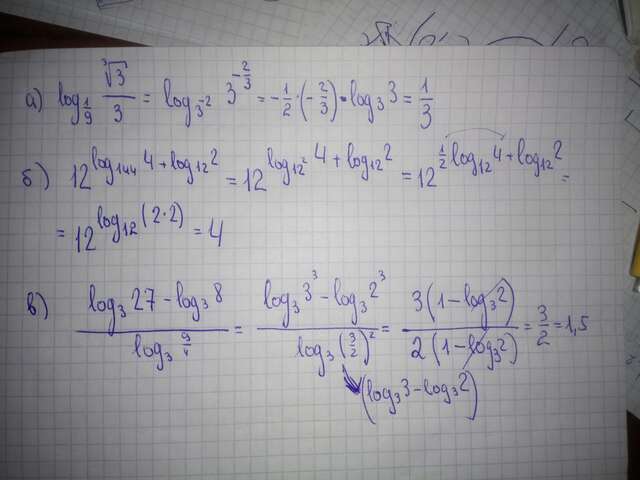 а) log_{1/9} ∛3/3 = log_{3^{-2}} 3^{-2/3} = -1/2 · (-2/3) · log_3 3 = 1/3
б) 12^{log_{144} 4 + log_{12} 2} = 12^{log_{12^2} 4 + log_{12} 2} = 12^{1/2 log_{12} 4 + log_{12} 2} =
= 12^{log_{12} (2·2)} = 4
в) (log_3 27 - log_3 8)/(log_3 9/4) = (log_3 3^3 - log_3 2^3)/(log_3 (3/2)^2) = 3(1 - log_3 2)/2(1 - log_3 2) = 3/2 = 1,5
(log_3 3 - log_3 2)